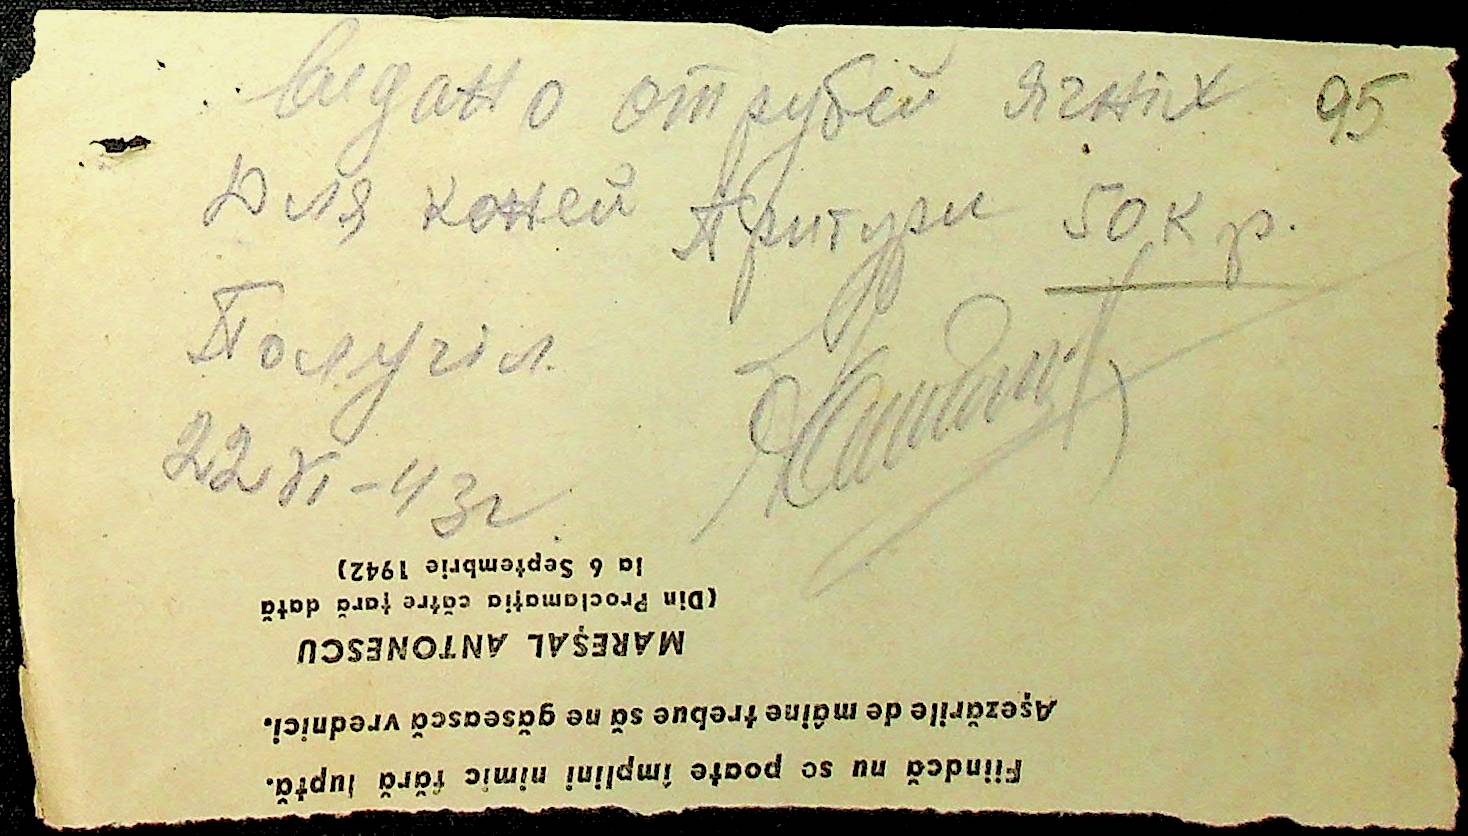 Видано отрубей ячніх 95
Для коней Притури 50 кг.
Получіл
22 VI - 43 г
Fiindcă nu se poate împlini nimic fără luptă.
Așezările de mâine trebue să ne găsească vrednici.
MAREȘAL ANTONESCU
(Din Proclamația către țară dată
la 6 Septembrie 1942)